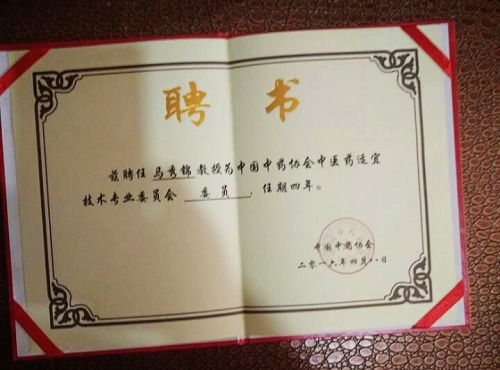 聘书
兹聘任 马秀锦 教授为中国中药协会中医药适宜
技术专业委员会 委员 ，任期四年。
中国中药协会
二零一六年四月八日